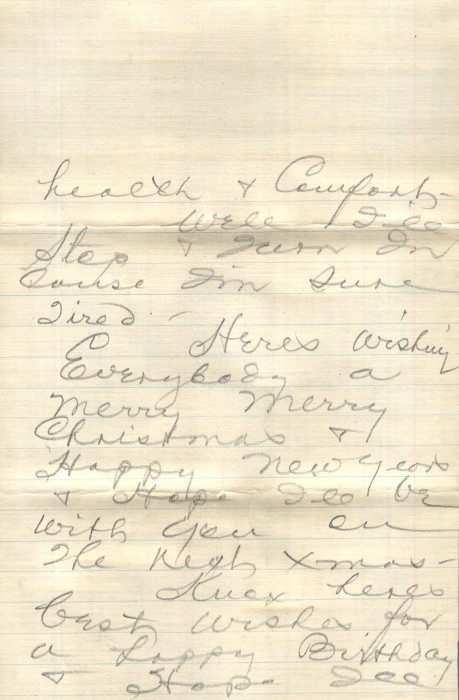 health + Comfort-
Well I'll
Stop & Turn In
Cause I'm Sure
Tired -
Heres Wishing
Everybody a
Merry Merry
Christmas +
Happy New Years
+ Hope I'll be
With you on
The Next Xmas-
Knox heres
best wishes for
a happy Birthday
+ Hope I'll